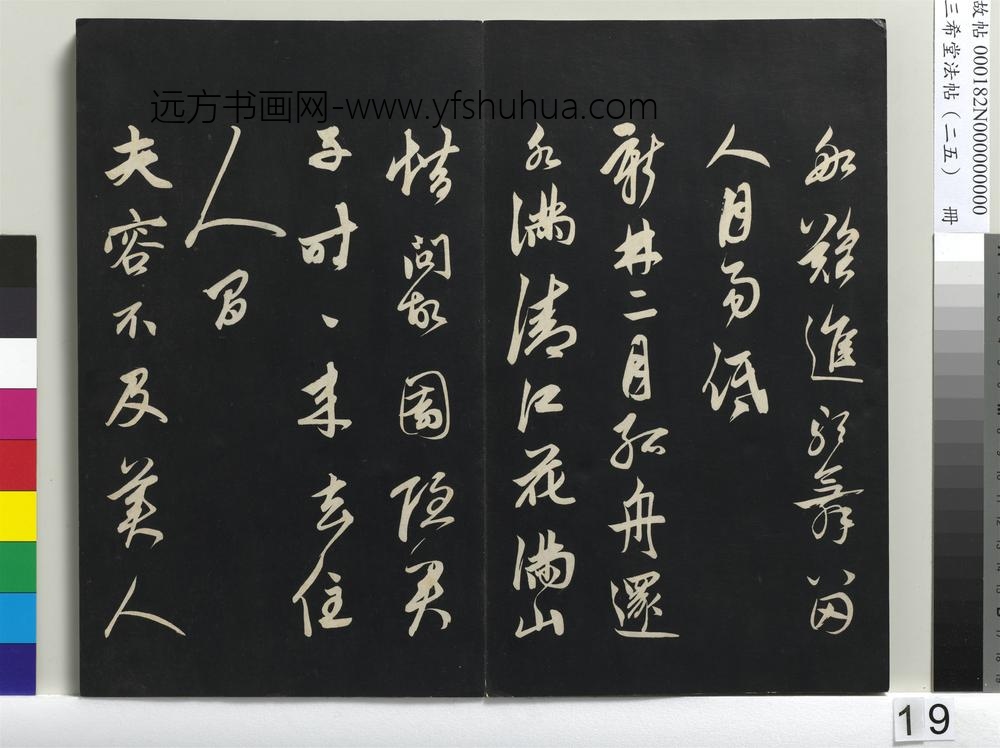 船難進歌舞留
人月易低
新林二月孤舟還
水滿清江花滿山
借問故園隱君
子時〻來去住
人間
夫容不及美人
远方书画网-www.yfshuhua.com
故帖 000182N000000000
三希堂法帖(二五) 冊
19